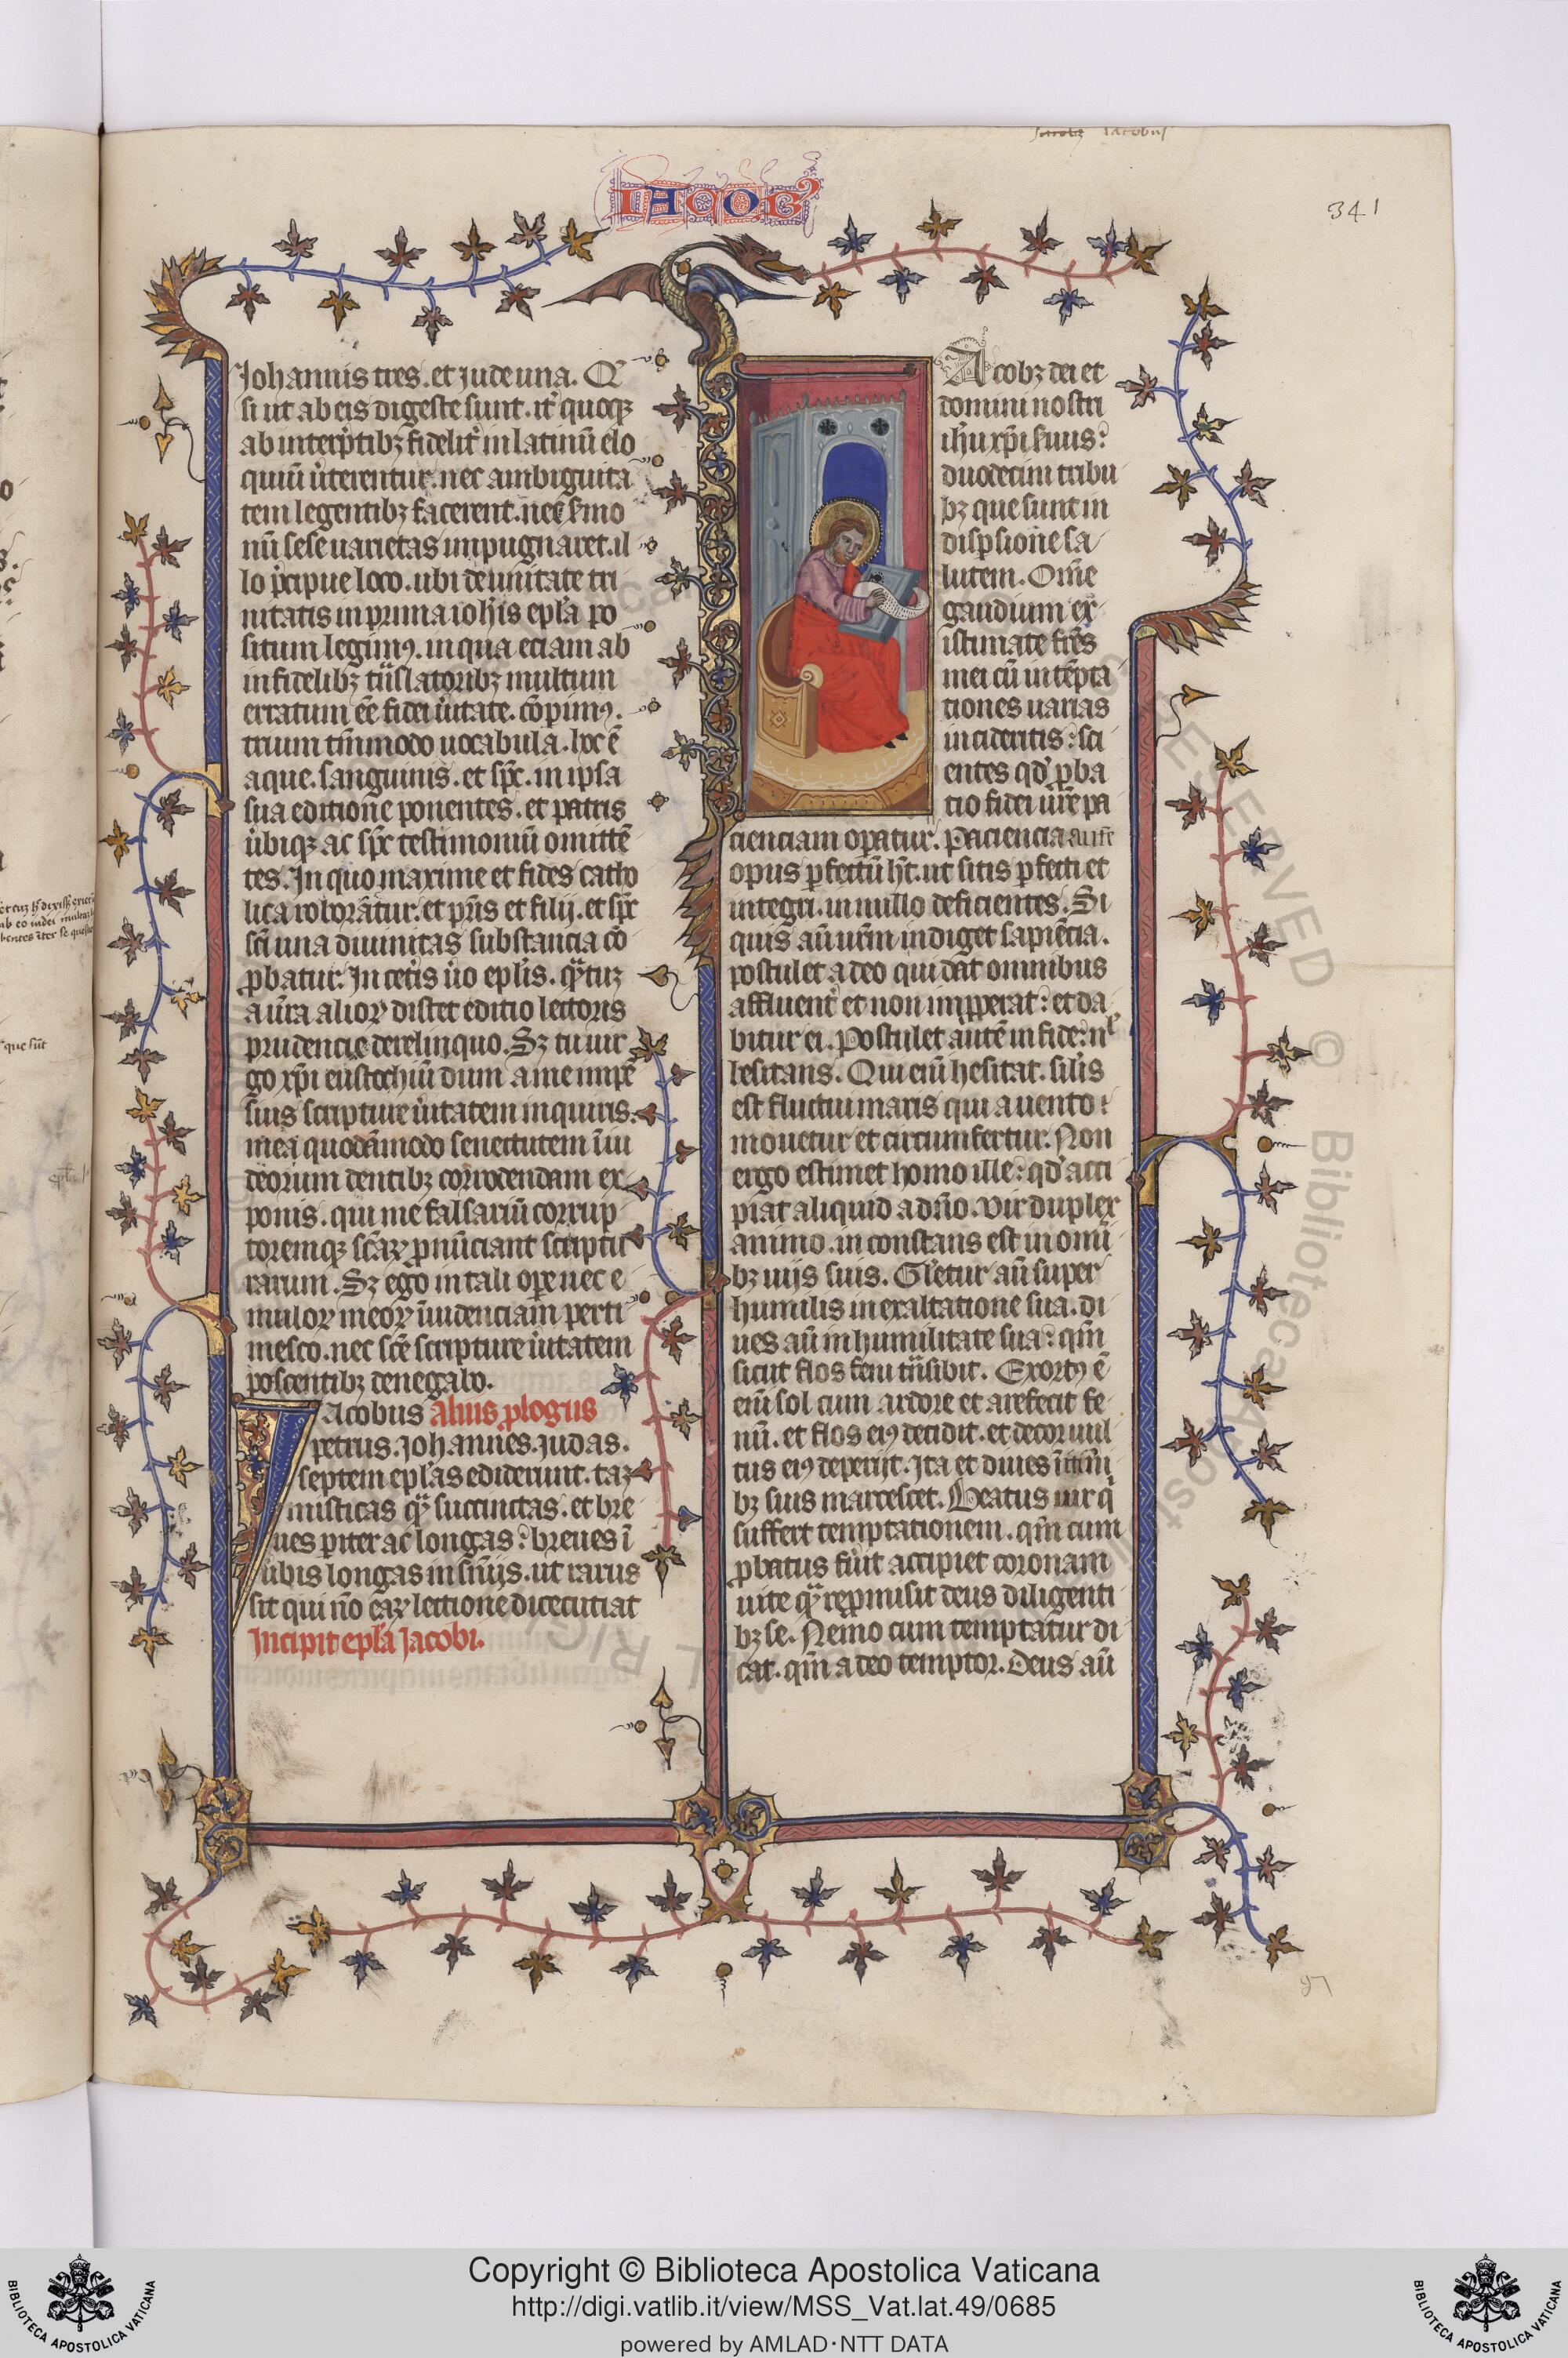 Jacobus
IACOB
341
Johannis tres. et jude una. Q
si ut ab eis digeste sunt. it̾ quoqꝫ
ab interp̾tibꝫ fidelit̾ in latinū elo
quiū u̾terentur. nec ambiguita
tem legentibꝫ facerent. nec s̾mo
nū sese uarietas impugnaret. il
lo p̾cipue loco. ubi de unitate tri
nitatis in prima ioh̄is ep̄la po
situm legimꝯ. in qua eciam ab
infidelibꝫ t̄nslatoribꝫ multum
erratum eē fidei u̾itate. cōperimꝯ.
trium tm̄modo uocabula. hoc ē
aque. sanguinis. et sp̄c. in ipsa
sua editione ponentes. et patris
u̾biqꝫ ac sp̄c testimoniū omittē
tes. In quo maxime et fides catho
lica roborātur. et pr̄is et filij. et sp̄c
sc̄i una diuinitas substancia cō
ꝓbatur. In cet̾is u̾o ep̄lis. qᷓtuꝫ
a nr̄a alioꝝ distet editio lectoris
prudencie derelinquo. Sꝫ tu uir
go xp̄i eustochiū dum a me impē
suis scripture u̾itatem inquiris.
meā quodāmodo senectutem īui
deorum dentibꝫ corrodendam ex
ponis. qui me falsariū corrup
toremqꝫ sc̄aꝝ ꝓnūciant scriptu
rarum. Sꝫ ego in tali oꝑe nec e
muloꝝ meoꝝ īuidenciam perti
mesco. nec sc̄e scripture u̾itatem
poscentibꝫ denegabo.
Jacobus alius ꝓlogus
petrus. Johannes. Judas.
septem ep̄las ediderunt. taꝫ
misticas qᷓꝫ succinctas. et bre
ues ꝑiter ac longas: breues ī
u̾bis longas in sn̄ijs. ut rarus
sit qui nō eaꝝ lectione dicecutiat
Incipit ep̄la Jacobi.
Jacobꝫ dei et
domini nostri
ih̄u xp̄i s̾uus:
duodecim tribu
bꝫ que sunt in
disꝑsione sa
lutem. Om̄e
gaudium ex
istimate fr̄es
mei cū in tēpta
tiones uarias
incideritis: sci
entes qd̾ ꝓba
tio fidei ur̄e pa
cienciam oꝑatur. Paciencia aut̄
opus ꝑfectū h̄t. ut sitis ꝑfecti et
integri. in nullo deficientes. Si
quis aū ur̄m indiget sapiēcia.
postulet a deo qui dat omnibus
affluent̾ et non imꝓperat: et da
bitur ei. Postulet autē in fide: nl̾
hesitans. Qui eni̅ hesitat. sil̾is
est fluctui maris qui a uento
mouetur et circumfertur. Non
ergo estimet homo ille: qd̾ acci
piat aliquid a dn̄o. Vir duplex
animo. inconstans est in omi̅
bꝫ uijs suis. Gl̾etur aū super
humilis in exaltatione sua. di
ues aū in humilitate sua: qm̄
sicut flos feni t̄nsibit. Exortꝯ ē
eni̅ sol cum ardore et arefecit fe
nū. et flos eiꝯ decidit. et decor uul
tus eiꝯ deperijt. Ita et diues ī itin̾i
bꝫ suis marcescet. Beatus uir q̾
suffert temptationem. qm̄ cum
ꝓbatus fu̾it accipiet coronam
uite qᷓꝫ reꝓmisit deus diligenti
bꝫ se. Nemo cum temptatur di
cat. qm̄ a deo temptor. Deus aū
© Biblioteca Apostolica Vaticana
Copyright © Biblioteca Apostolica Vaticana
http://digi.vatlib.it/view/MSS_Vat.lat.49/0685
powered by AMLAD·NTT DATA
BIBLIOTECA APOSTOLICA VATICANA
BIBLIOTECA APOSTOLICA VATICANA